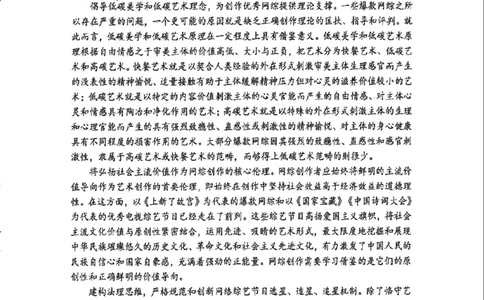 倡导低碳美学和低碳艺术理念，为创作优秀网综提供理论支撑。一些爆款网综之所
以存在严重的问题，一个更可能的原因就是缺乏正确创作理论的匡扶、指导和评判。就
此而言，低碳美学和低碳艺术原理在一定程度上具有借鉴意义。低碳美学和低碳艺术原
理根据自由情感之于审美主体的价值高低、大小与正负，把艺术分为快餐艺术、低碳艺
术和高碳艺术。快餐艺术就是以契合人类经验的外在形式刺激审美主体生理感官而产生
的浅表性的精神愉悦、适量接触有助于主体缓解精神压力但对心灵的滋养价值较小的艺
术；低碳艺术就是以特定的内容价值刺激主体的心灵官能而产生的自由情感、对主体心
灵和情感具有陶冶和净化作用的艺术；高碳艺术就是以特殊的外在形式刺激主体的生理
和心理官能而产生的具有强烈致瘾性、蛊惑性或刺激性的精神愉悦、对主体的身心健康
具有不同程度的损害作用的艺术。大部分爆款网综因其强烈的致瘾性、蛊惑性和感官刺
激性，隶属于高碳艺术或快餐艺术的范畴，而够得上低碳艺术范畴的则很少。
将弘扬社会主流价值作为网综创作的核心伦理。网综创作者应始终将鲜明的主流价
值导向作为艺术创作的首要伦理，即始终在创作中坚持社会效益高于经济效益的道德理
性。在这方面，以《上新了故宫》为代表的爆款网综和以《国家宝藏》《中国诗词大会》
为代表的优秀电视综艺节目已经走在了前列。这些综艺节目高扬爱国主义旗帜，将社会
主流文化价值与原创性紧密结合，运用先进、吸睛的艺术形式，最大限度地挖掘和展现
中华民族璀璨悠久的历史文化、革命文化和社会主义先进文化，有力激发了中国人民的
民族自信心和国家自豪感，充满着强劲的正能量。网综创作需要学习借鉴的是它们的原
创性和正确鲜明的价值导向。
建构法理思维，严格规范和创新网络综艺节目选星、造星、追星机制。除了恪守艺